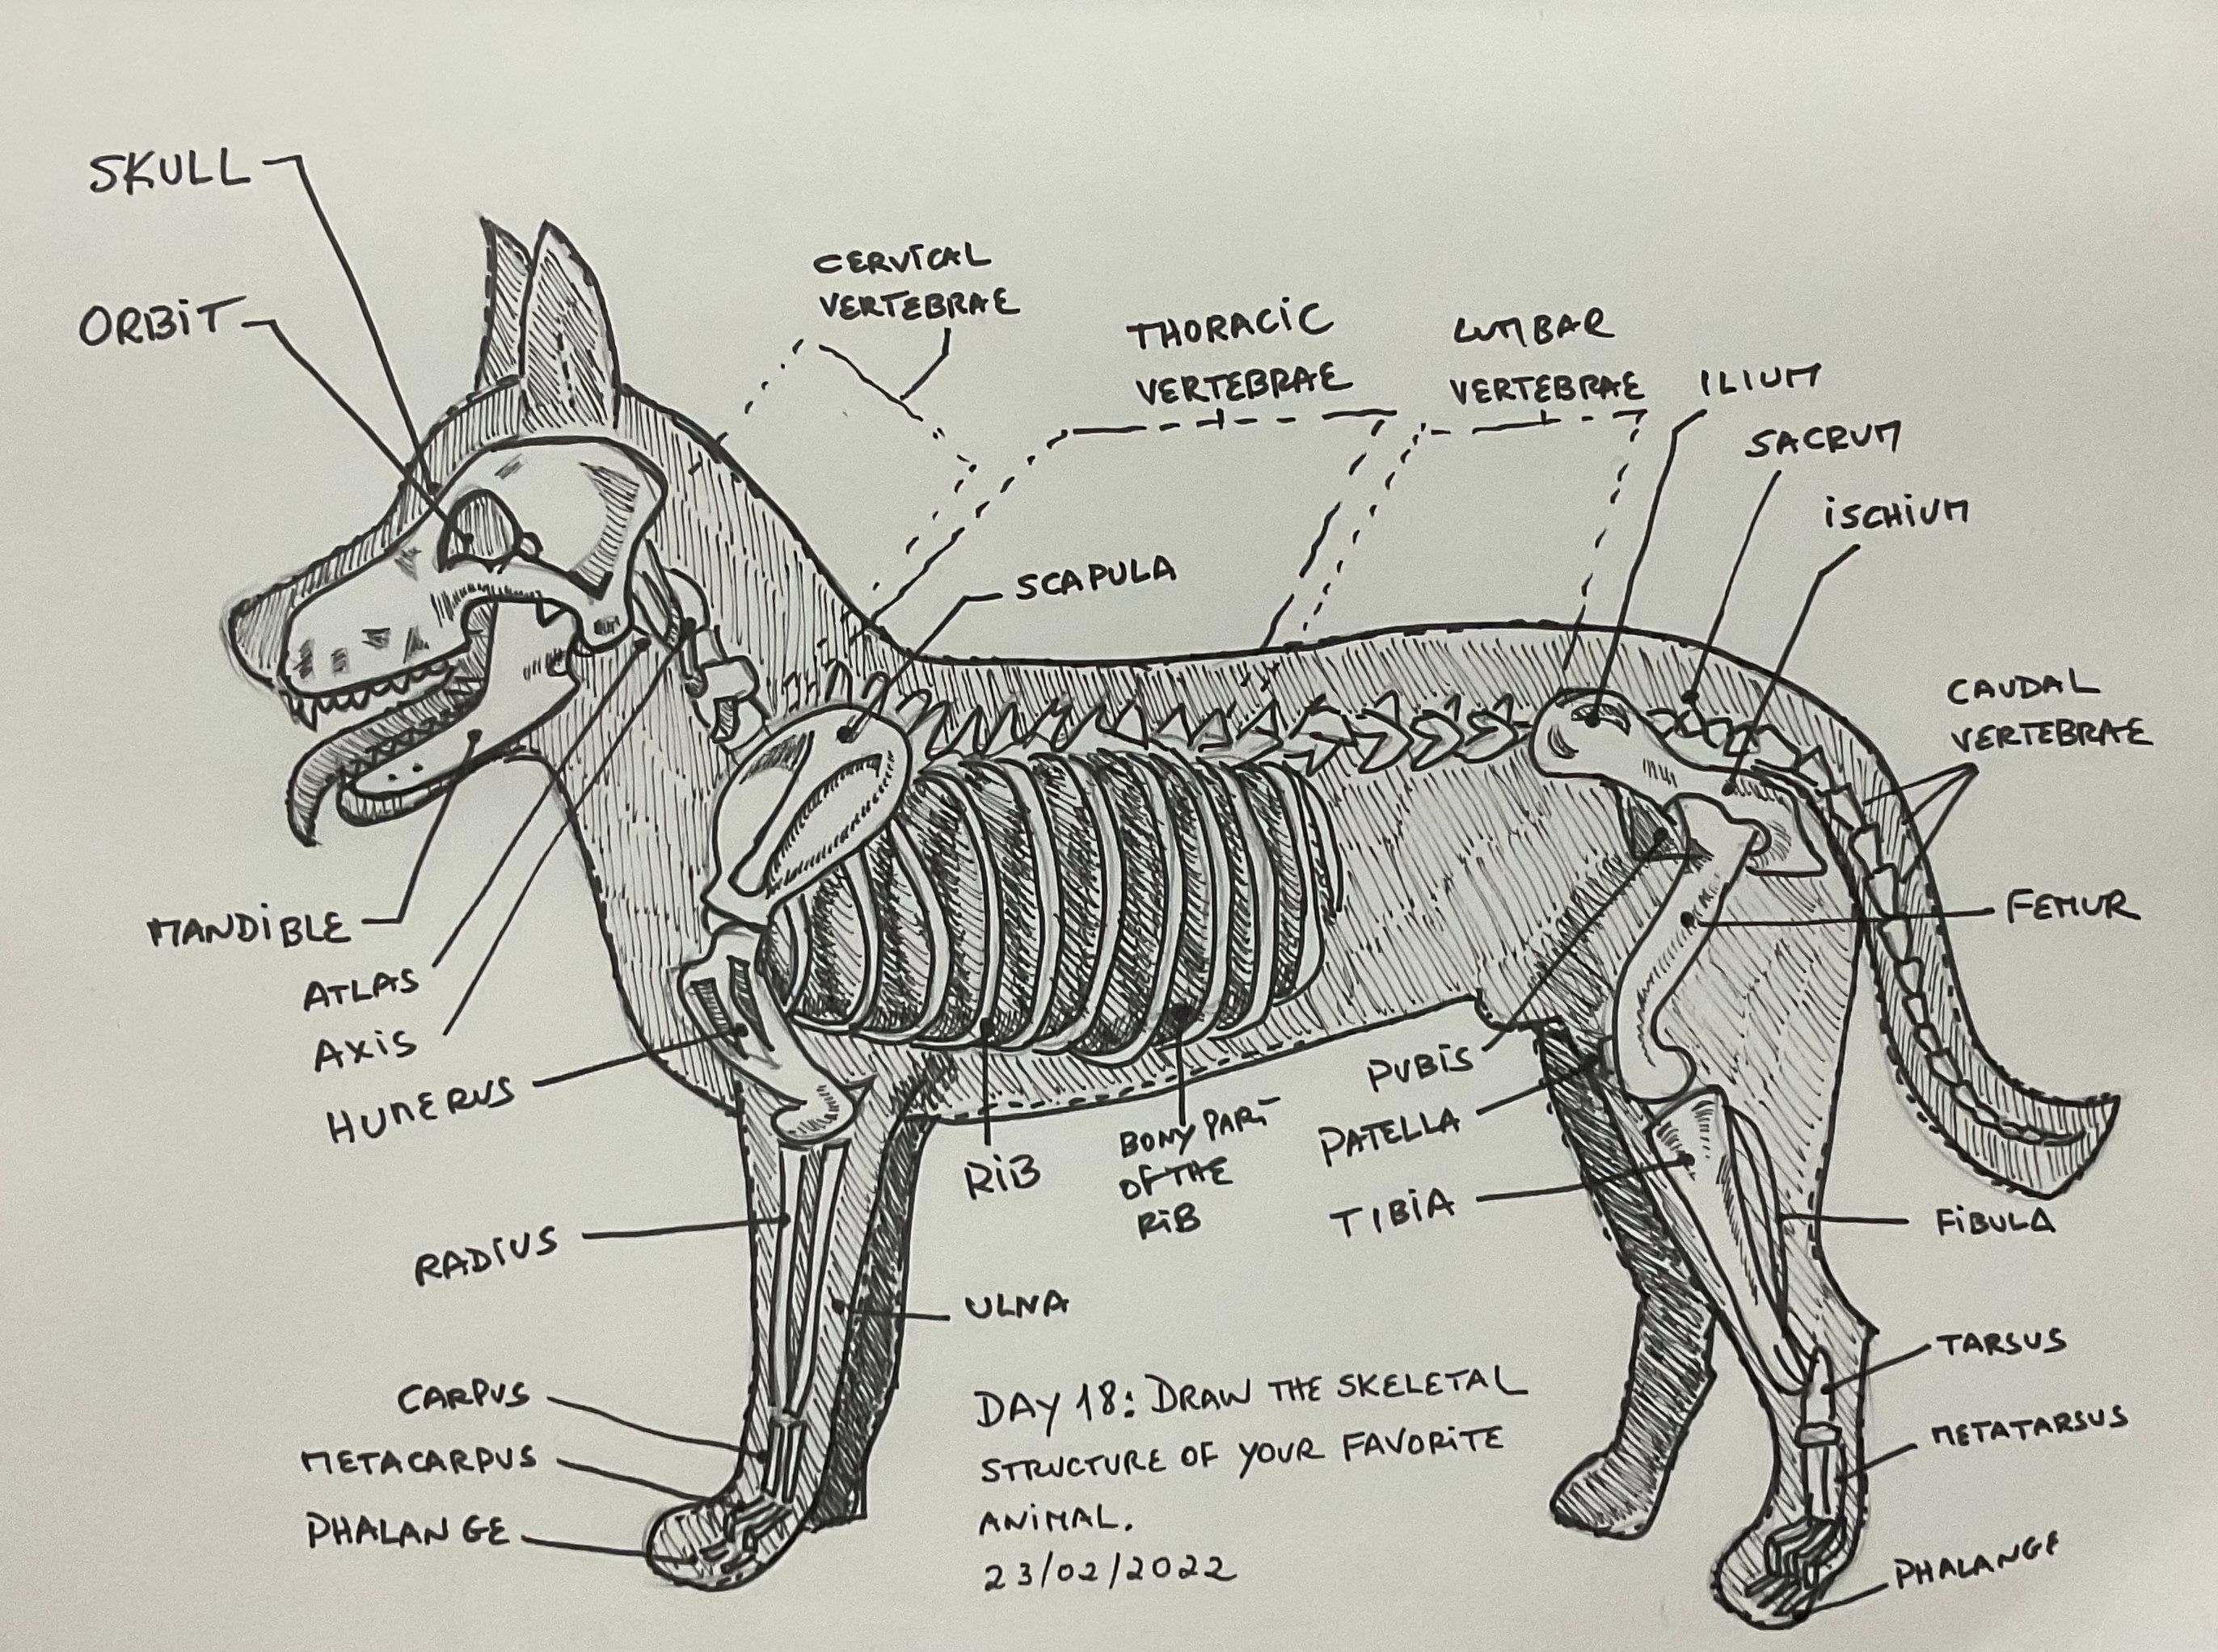 SKULL
ORBiT
CERViCAL
VERTEBRAE
THORACiC
VERTEBRAE
LUMBAR
VERTEBRAE
ILIUM
SACRUM
iSCHiUM
SCAPULA
CAUDAL
VERTEBRAE
MANDiBLE
ATLAS
AXiS
HUMERUS
FEMUR
PUBiS
PATELLA
TIBiA
RiB
BONY PART
OF THE
RiB
RADiUS
ULNA
FiBULA
CARPUS
METACARPUS
PHALANGE
TARSUS
METATARSUS
PHALANGE
DAY 18: DRAW THE SKELETAL
STRUCTURE OF YOUR FAVORiTE
ANiMAL.
23/02/2022